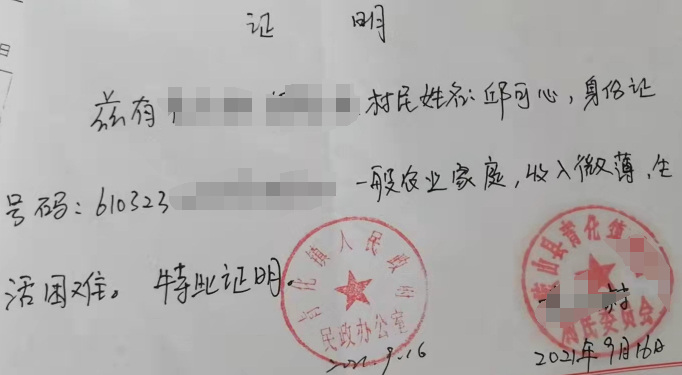 证 明
兹有 村民姓名:邱可心,身份证
号码:610323 一般农业家庭,收入微薄,生
活困难。特此证明.
青化镇人民政府
民政办公室
2021.9.16
岐山县青化镇
村
村民委员会
2021年9月16日